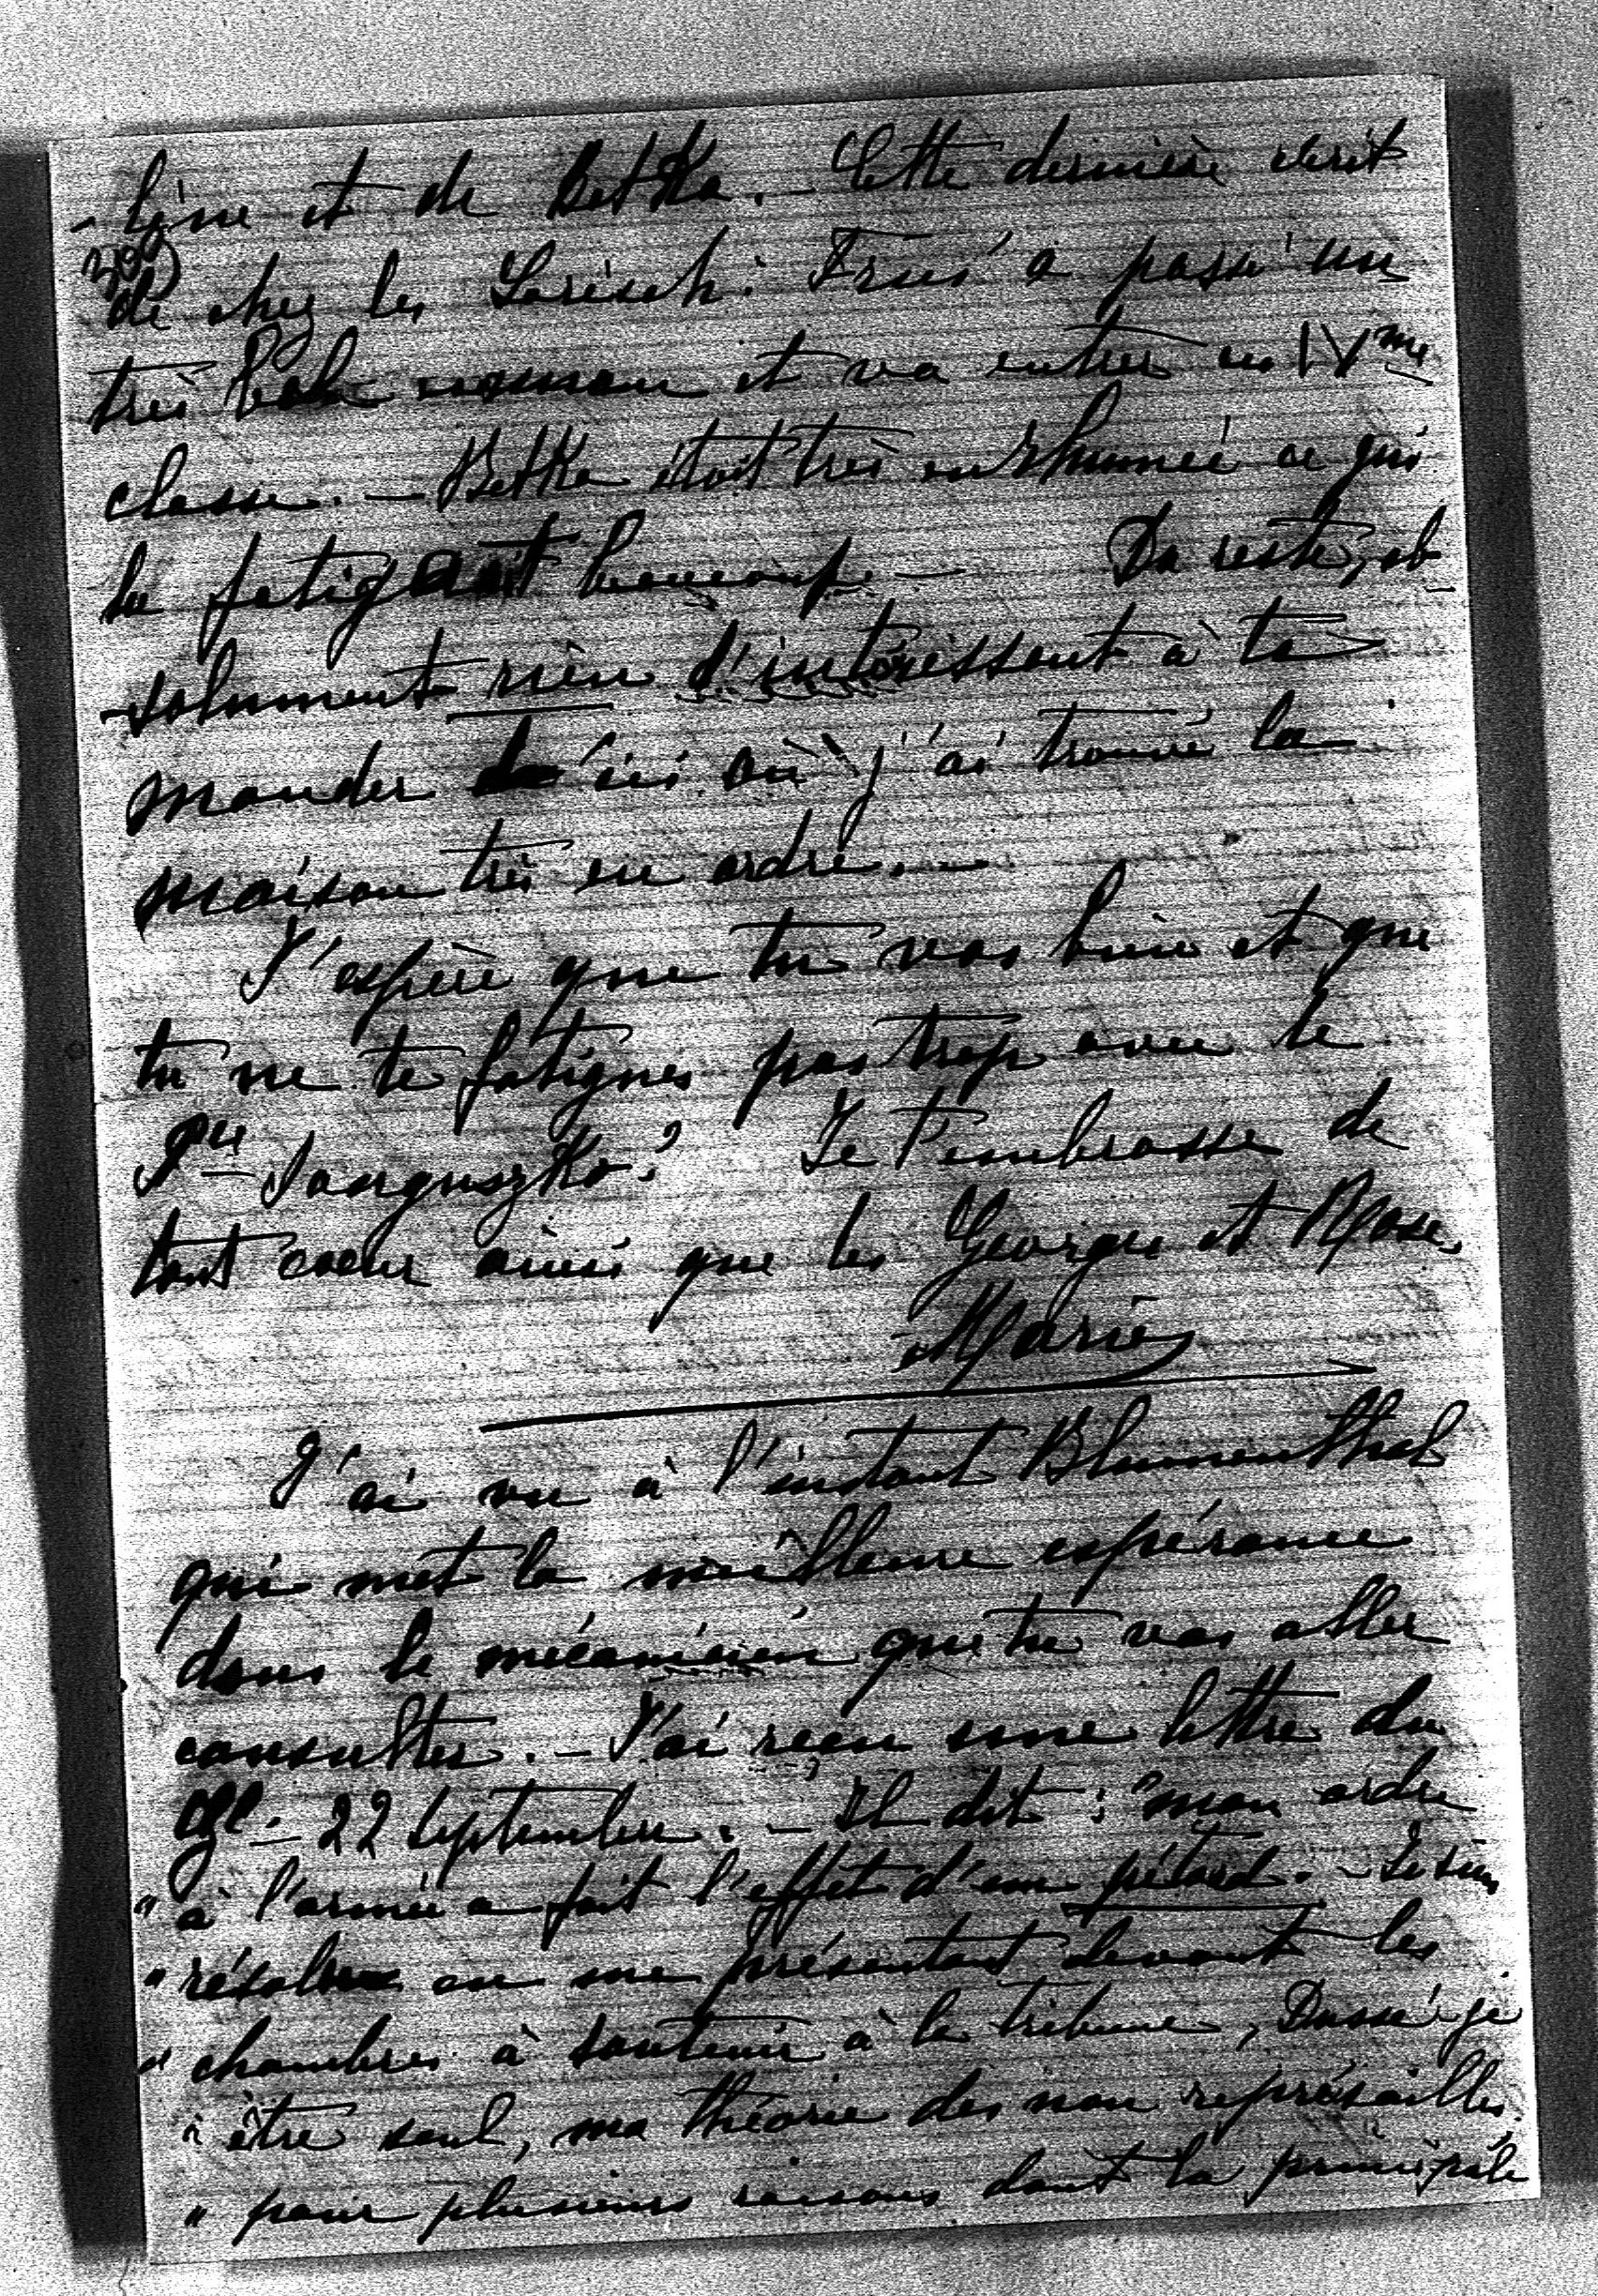 -line et de Betka. - Cette dernière écrit
de chez les Larisch. Fras' a passé un
très bel examen et va entrer en IVme
classe. - Betka était très enrhumée ce qui
la fatiguait beaucoup. - Du reste, ab-
-solument rien d'intéressant à te
mander d'ici où j'ai trouvé la
maison très en ordre. -
J'espère que tu vas bien et que
tu ne te fatigues pas trop avec le
Pce Sanguszko? Je t'embrasse de
tout coeur ainsi que les Georges et Rose.
Marie
J'ai vu à l'instant Blumenthal
qui met la meilleure espérance
dans le mécanicien que tu vas aller
consulter. - J'ai reçu une lettre du
Gl - 22 Septembre. - Il dit : "mon ordre
" à l'armée a fait l'effet d'un pétard. - Je suis
" résolu en me présentant devant les
" chambres à soutenir à la tribune, Dussé-je
" être seul, ma théorie des non représailles.
" pour plusieurs raisons dont la principale